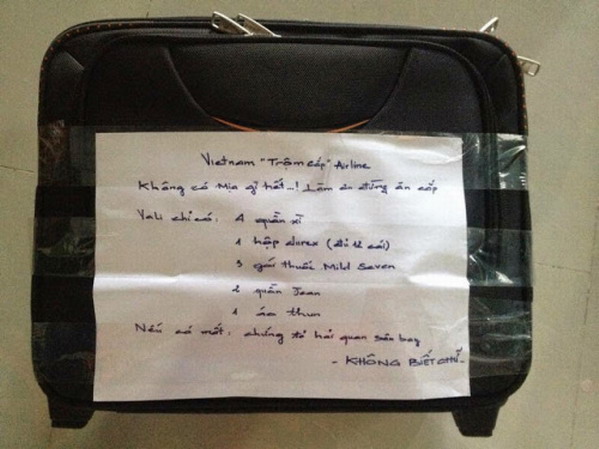 Vietnam "Trộm cắp" Airline
Không có Mịa gì hết...! Làm ơn đừng ăn cắp
Vali chỉ có: 4 quần xì
1 hộp durex (đủ 12 cái)
3 gói thuốc Mild Seven
2 quần Jean
1 áo thun
Nếu có mất, chứng tỏ hải quan sân bay
- KHÔNG BIẾT CHỮ -